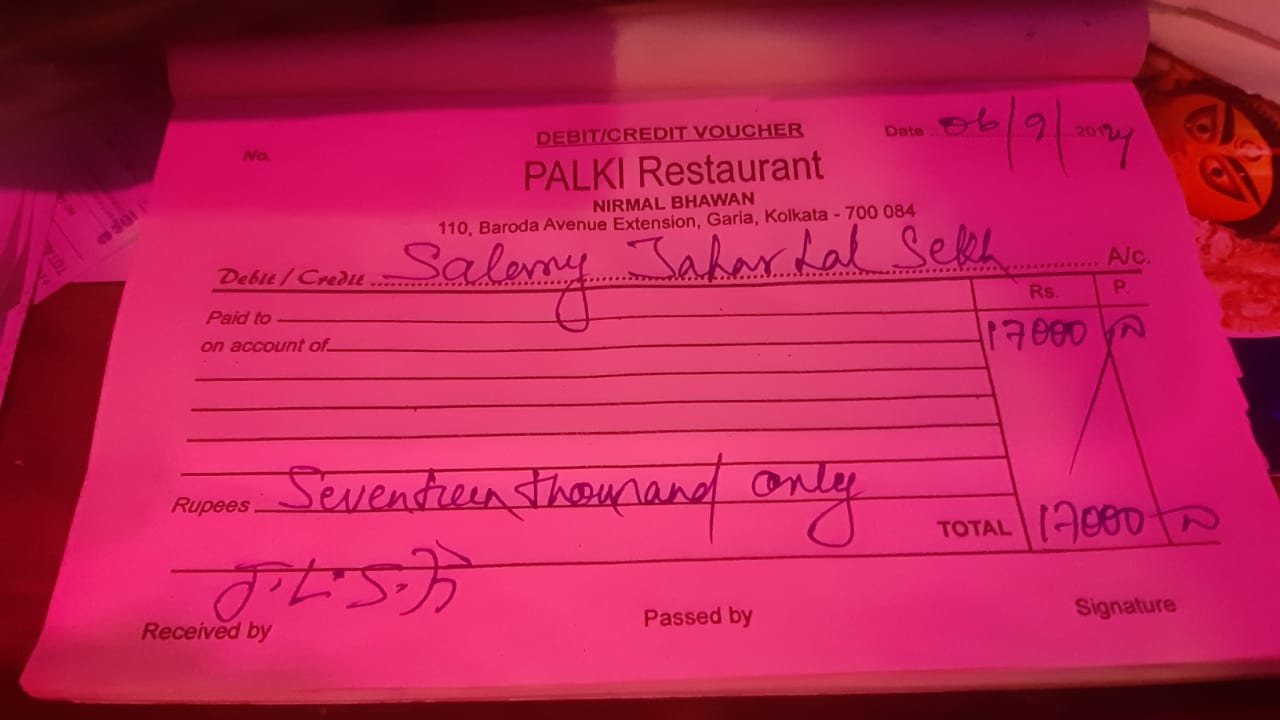 DEBIT/CREDIT VOUCHER
No.
Date 06/9/2024
PALKI Restaurant
NIRMAL BHAWAN
110, Baroda Avenue Extension, Garia, Kolkata - 700 084
Debit / Credit Salemy Jahar Lal Sekh A/c.
Rs. P.
Paid to
on account of 17000
Rupees Seventeen thousand only
TOTAL 17000
J.L.S.
Received by
Passed by
Signature